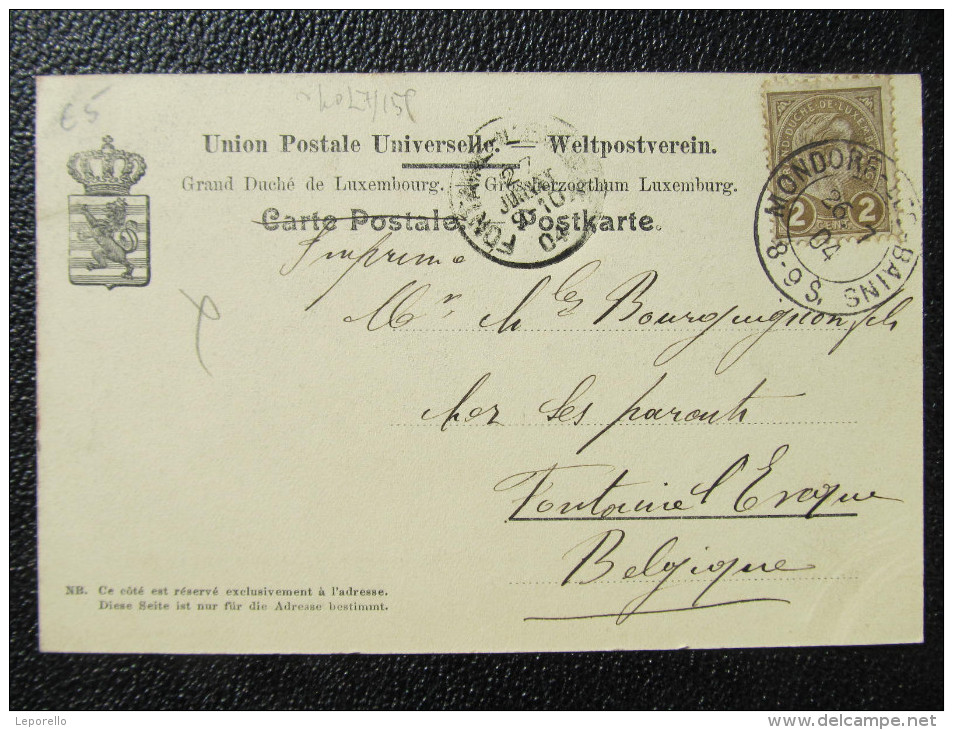 €5
Union Postale Universelle. — Weltpostverein.
Grand Duché de Luxembourg. Grossherzogthum Luxemburg.
Carte Postale — Postkarte.
Imprimé
GD DUCHE-DE-LUXEMB
2 2
MONDORF-LES-BAINS
26 7
04
8-9 S.
27
JUILLET
10
04
Mr Ch les Bourguignon fils
chez ses parents
Fontaine l'Evêque
Belgique
NB. Ce côté est réservé exclusivement à l'adresse.
Diese Seite ist nur für die Adresse bestimmt.
Leporello
www.delcampe.net